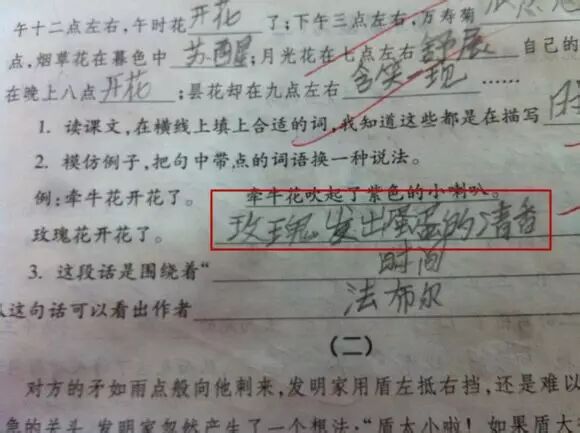 午十二点左右,午时花 开花 了;下午三点左右,万寿菊
点,烟草花在暮色中 苏醒 ;月光花在七点左右 舒展 自己的
在晚上八点 开花 ;昙花却在九点左右 含笑一现 ……
1. 读课文,在横线上填上合适的词,我知道这些都是在描写
2. 模仿例子,把句中带点的词语换一种说法。
例:牵牛花开花了。 牵牛花吹起了紫色的小喇叭。
玫瑰花开花了。 玫瑰发出蛋蛋的清香
3. 这段话是围绕着“ 时间
这句话可以看出作者 法布尔
(二)
对方的矛如雨点般向他刺来,发明家用盾左抵右挡,还是难以
急的关头,发明家忽然产生了一个想法:“盾太小啦!如果盾大